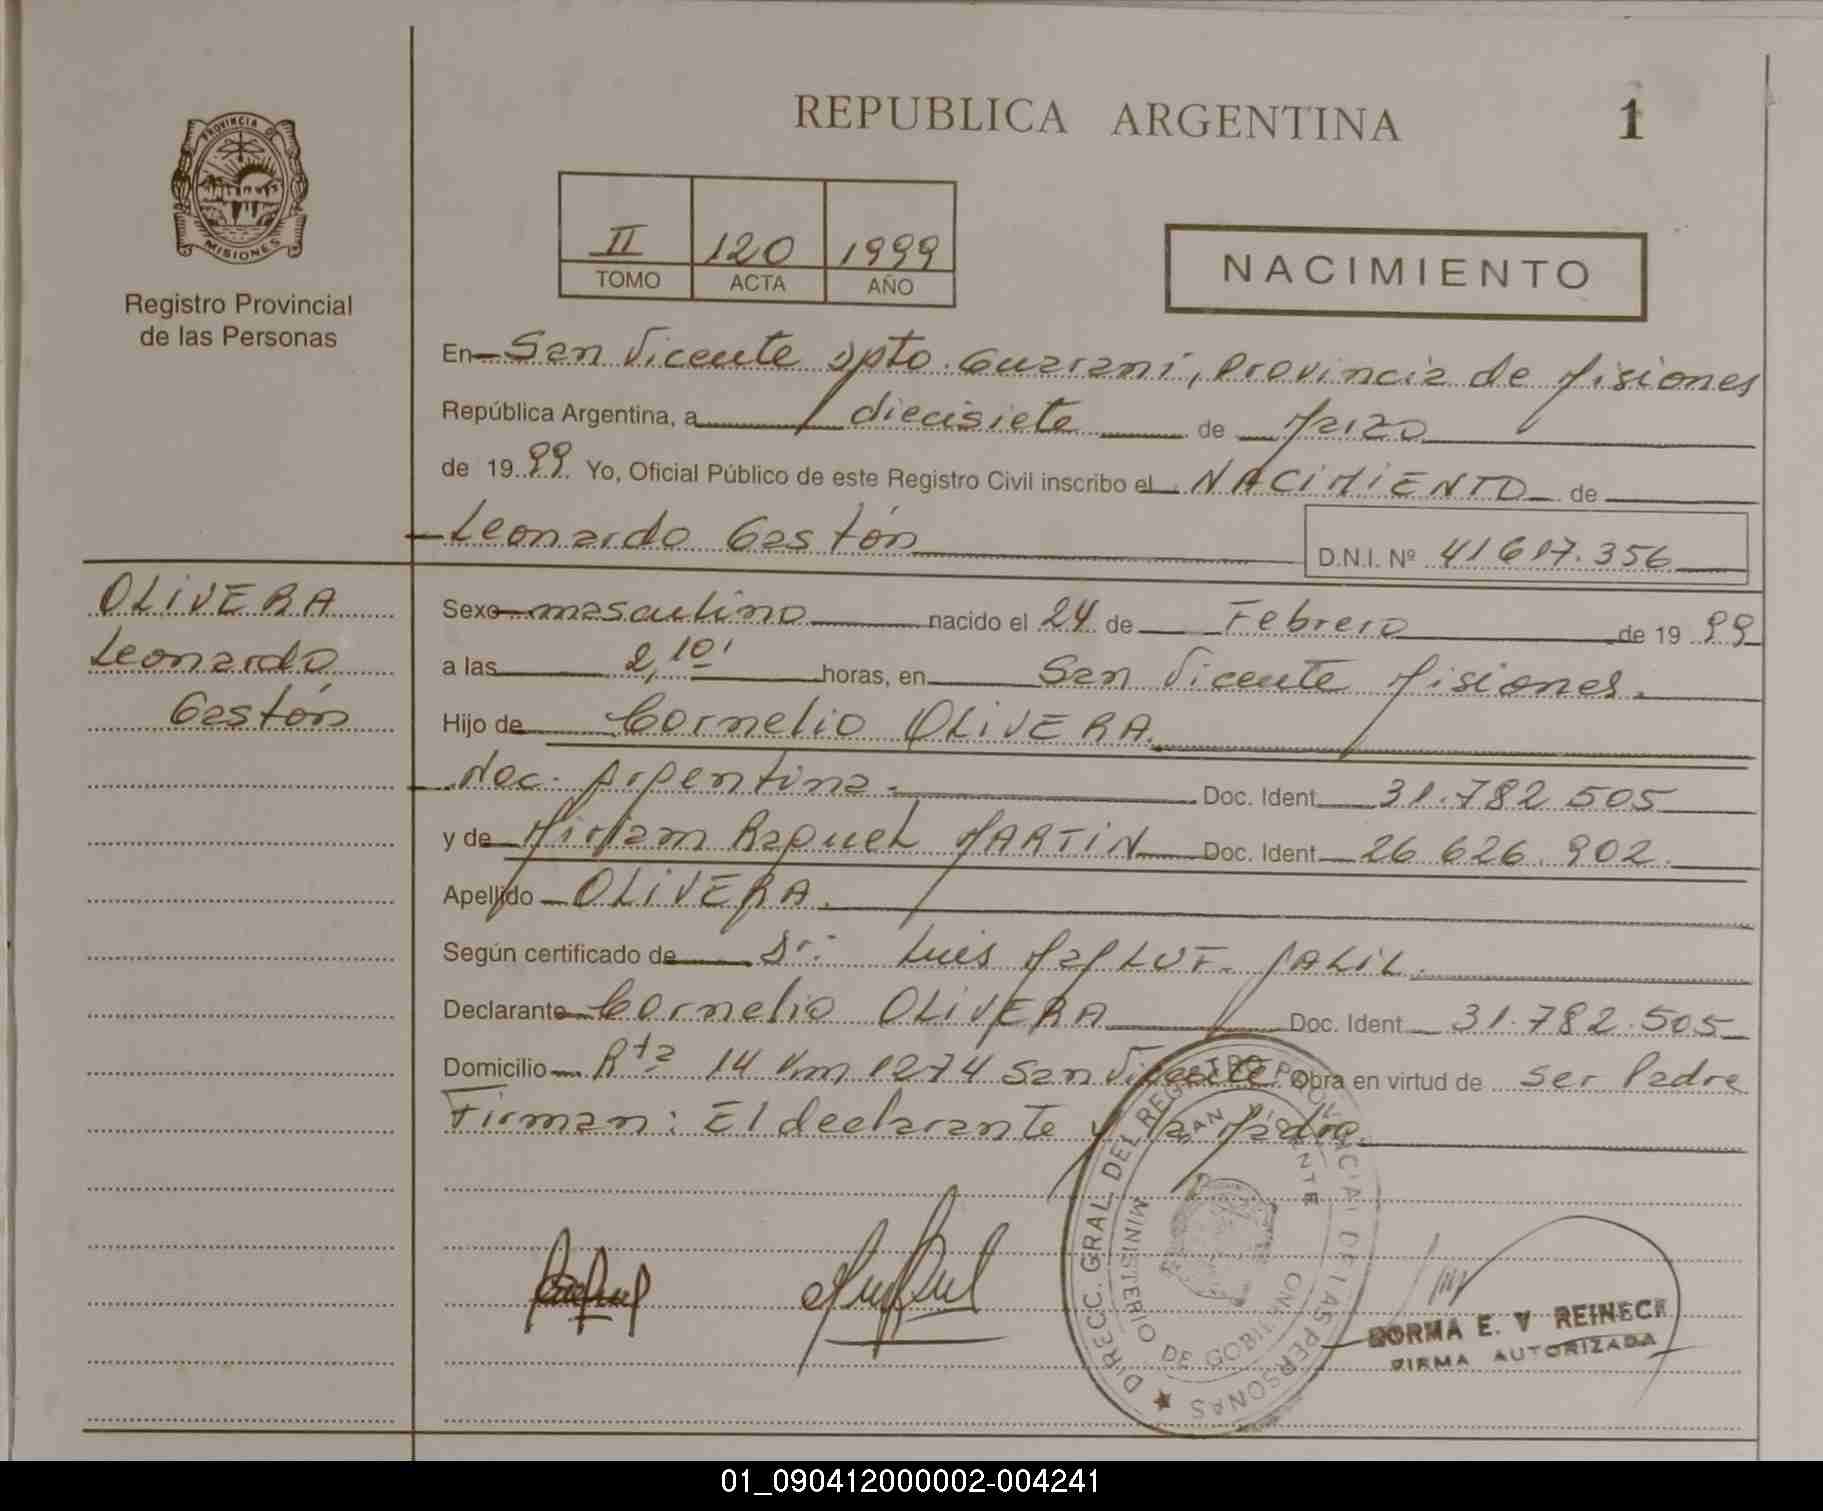 REPUBLICA ARGENTINA
1
PROVINCIA DE
MISIONES
Registro Provincial
de las Personas
II 120 1999
TOMO ACTA AÑO
NACIMIENTO
En San Vicente Dpto. Guaraní, Provincia de Misiones
República Argentina, a diecisiete de Marzo
de 1999. Yo, Oficial Público de este Registro Civil inscribo el NACIMIENTO de
Leonardo Gastón
D.N.I. Nº 41617.356
OLIVERA
Leonardo
Gastón
Sexo masculino nacido el 24 de Febrero de 1999
a las 2,10' horas, en San Vicente Misiones.
Hijo de Cornelio OLIVERA.
Nac. Argentina. Doc. Ident. 31.782.505
y de Miriam Raquel MARTIN Doc. Ident. 26.626.902.
Apellido OLIVERA.
Según certificado de Dr. Luis JALIL.
Declarante Cornelio OLIVERA Doc. Ident. 31.782.505
Domicilio Rta 14 Km 1274 San Vicente. Obra en virtud de ser Padre
Firman: El declarante y la Madre.
DIRECC. GRAL. DEL REGISTRO PROVINCIAL DE LAS PERSONAS
SAN VICENTE
MINISTERIO DE GOBIERNO
NORMA E. V REINECK
FIRMA AUTORIZADA
01_090412000002-004241